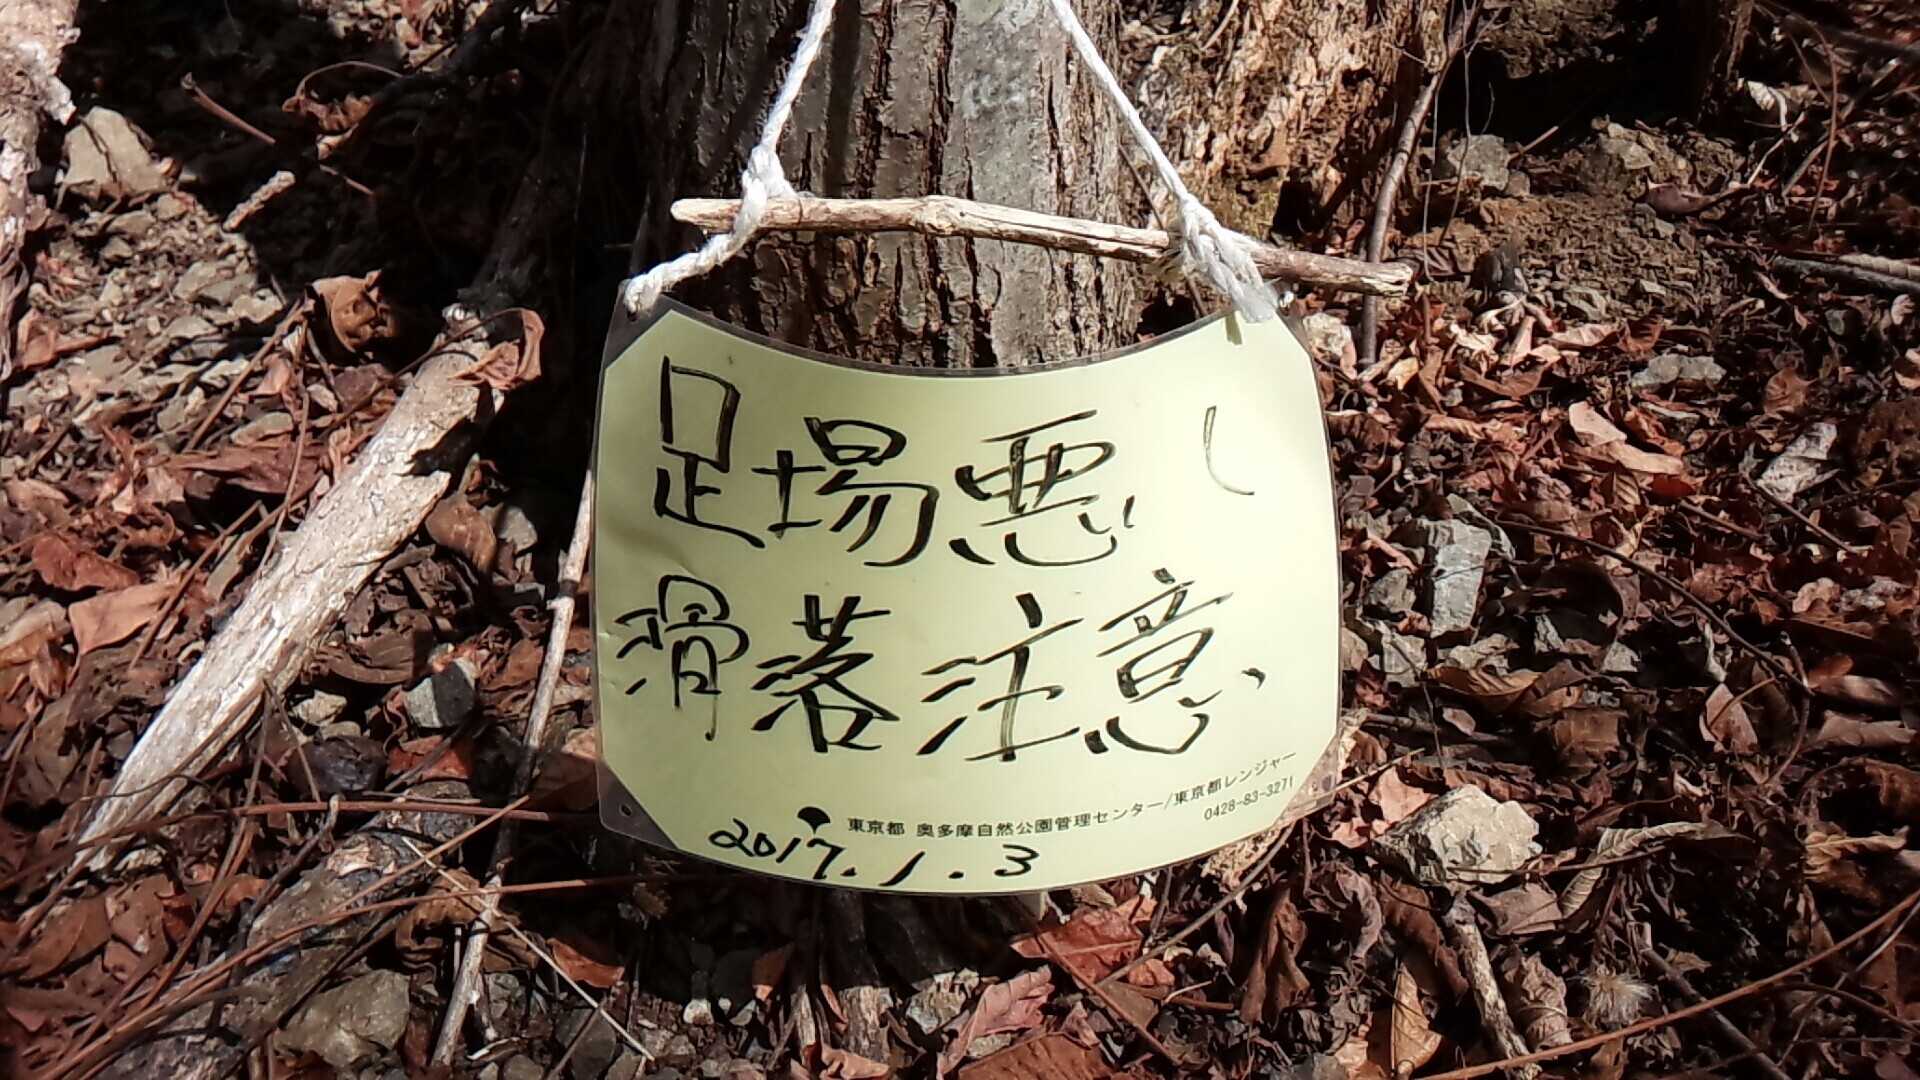 足場悪し
滑落注意
東京都 奥多摩自然公園管理センター/東京都レンジャー
0428-83-3271
2017.1.3